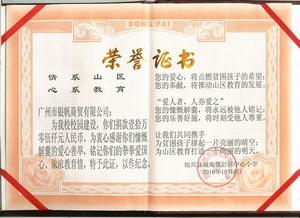 DONG PAI
荣誉证书
情系山区
心系教育
广州市银帆商贸有限公司:
为我校校园建设，你们捐款壹拾万
零伍仟元人民币，为衷心感谢你们慷慨
解囊的爱心善举，铭记你们的拳拳爱国
心、浓浓教育情，特予此证，以作纪念。
您的爱心，将点燃贫困孩子的希望；
您的奉献，将推动山区教育的发展。
“爱人者，人亦爱之”
您的慷慨解囊，将永远被他人铭记；
您的乐善好施，将时刻受他人尊重。
让我们共同携手
为贫困孩子撑起一片亮丽的晴空；
为山区教育打造一个亮丽的明天。
始兴县城南镇中心小学
2010年10月